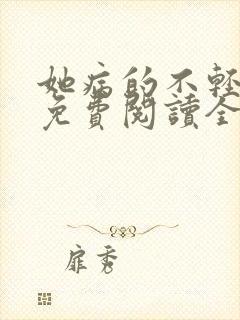 她病的不輕
免費閱讀全
扉秀